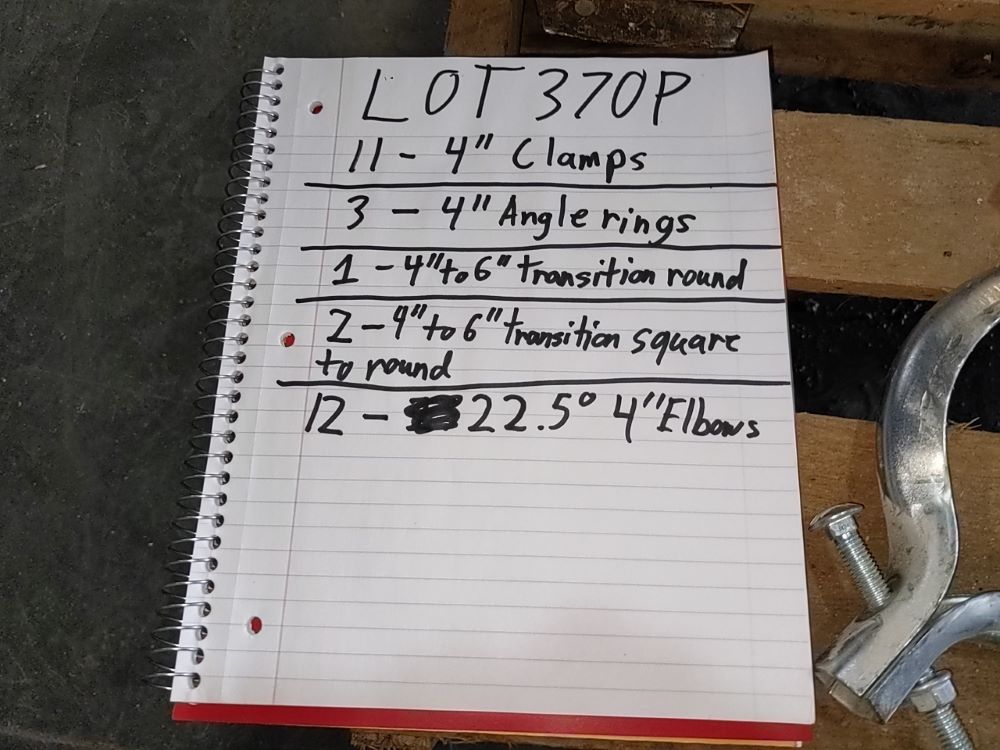 LOT 370P
11 - 4" Clamps
3 - 4" Angle rings
1 - 4" to 6" transition round
2 - 4" to 6" transition square
to round
12 - 22.5° 4" Elbows